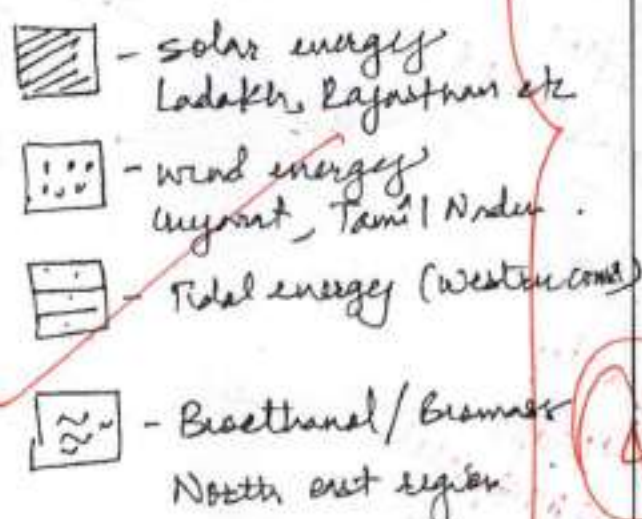 - solar energy
Ladakh, Rajasthan etc
- wind energy
Gujarat, Tamil Nadu .
- Tidal energy (Western coast)
- Bioethanol / Biomass
North east region